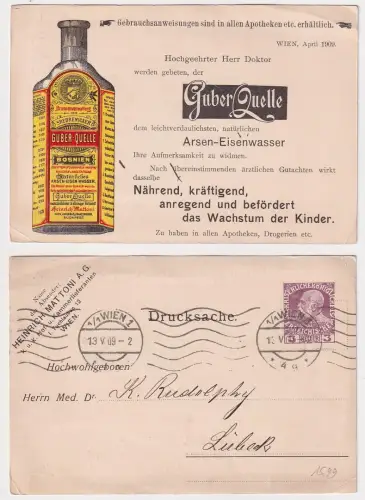 Gebrauchsanweisungen sind in allen Apotheken etc. erhältlich.
WIEN, April 1909.
Hochgeehrter Herr Doktor
werden gebeten, der
Guber Quelle
dem leichtverdaulichsten, natürlichen
Arsen-Eisenwasser
Ihre Aufmerksamkeit zu widmen.
Nach übereinstimmenden ärztlichen Gutachten wirkt
dasselbe
Nährend, kräftigend,
anregend und befördert
das Wachstum der Kinder.
Zu haben in allen Apotheken, Drogerien etc.
GUBER-QUELLE
BOSNIEN
ARSEN-EISEN-WASSER
Guber Quelle
Heinrich Mattoni
Name
des Absenders:
HEINRICH MATTONI A. G.
WIEN.
1/1 WIEN 1
13 V 09 - 2
Drucksache.
1/1 WIEN 1
Hochwohlgeboren
Herrn Med. Dr K. Rudolphy
Lübeck
1599